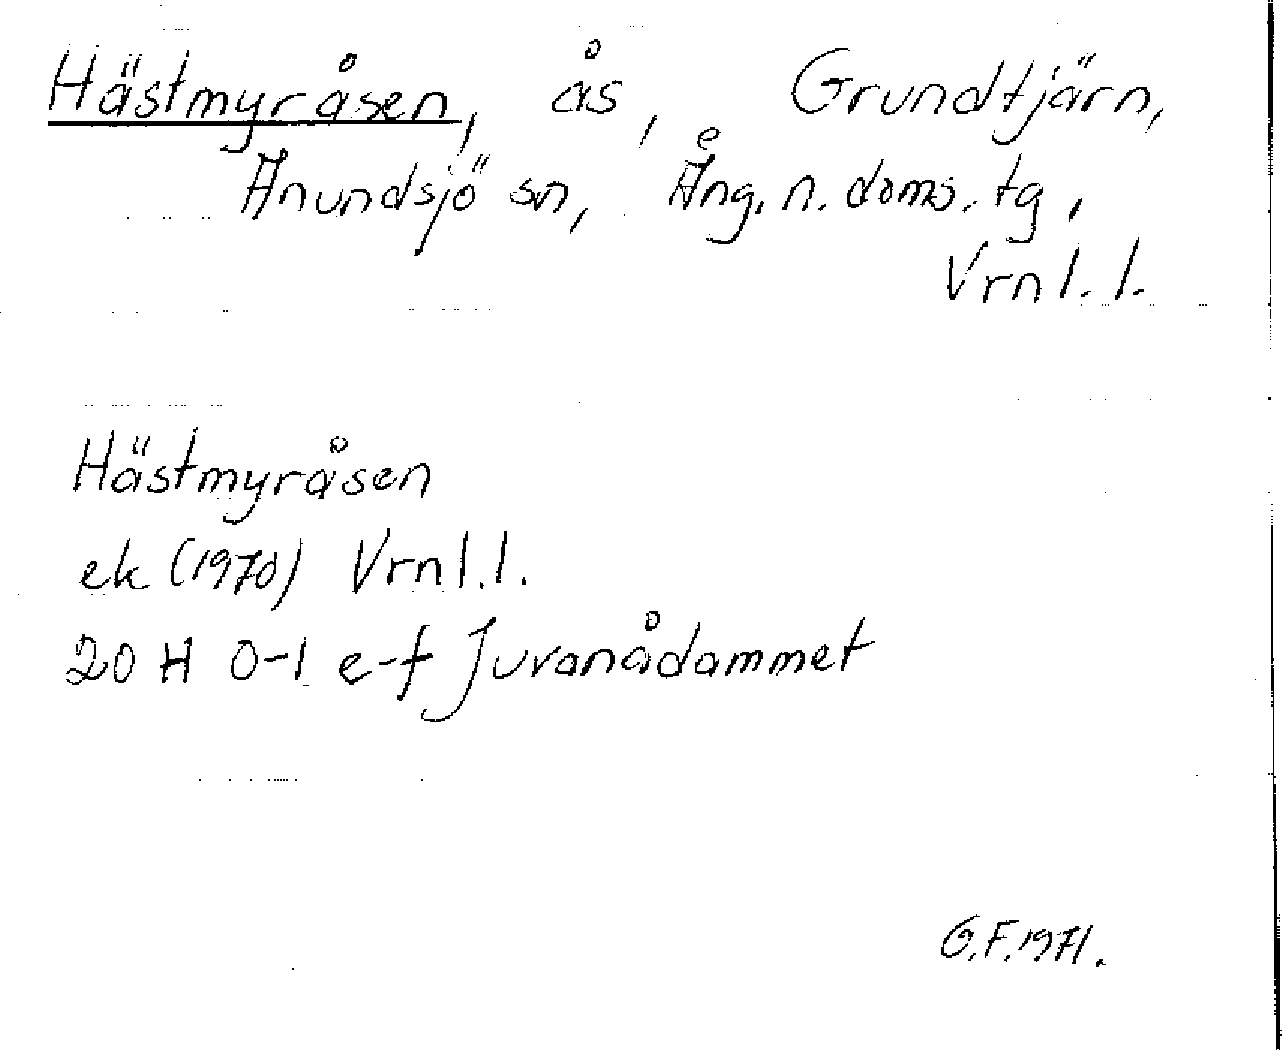 Hästmyråsen, ås, Grundtjärn,
Anundsjö sn, Ång. n. doms. tg,
Vrnl. l.
Hästmyråsen
ek (1970) Vrnl. l.
20 H 0-1 e-f Juvanådammet
G.F. 1971.